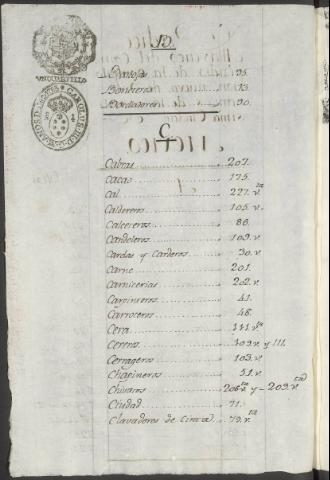 B.
95.
Bonbreros 13.
Bordadores 90.
C
Cabras 207.
Cacao 175.
Cal 227. v.ta
Caldereros 105. v.
Calceteros 86.
Candeleros 109. v.
Cardas y Carderos 30. v.
Carne 201.
Carnicerias 202. v.
Carpinteros 41.
Carroceros 48.
Cera 111. v.ta
Cereros 109. v. y 111.
Cerrageros 103. v.
Chapineros 51. v.
Chivatos 206 v. y 209. v.
Ciudad 71.
Clavadores de Cinta 79. v.ta